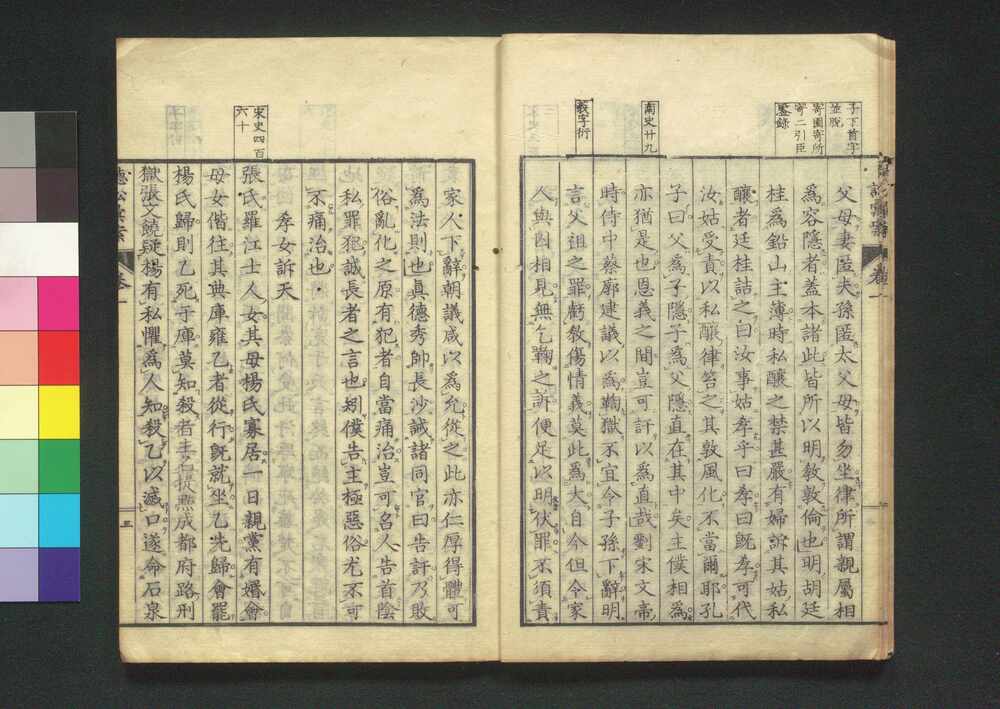 子下首字
並脫
寄園寄所
寄二引臣
鑒錄
南史廿九
義字衍
父母妻匿夫孫匿大父母皆勿坐律所謂親屬相
為容隱者蓋本諸此皆所以明教敦倫也明胡廷
桂為鉛山主簿時私釀之禁甚嚴有婦訴其姑私
釀者廷桂詰之曰汝事姑孝乎曰孝曰既孝可代
汝姑受責以私釀律笞之其敦風化不當爾耶孔
子曰父為子隱子為父隱直在其中矣主僕相為
亦猶是也恩義之間豈可訐以為直哉劉宋文帝
時侍中蔡廓建議以為鞫獄不宜令子孫下辭明
言父祖之罪虧敎傷情義莫此為大自今但令家
人與囚相見無乞鞫之訴便足以明伏罪不須責
卷一
宋史四百
六十
家人下辭朝議咸以為允從之此亦仁厚得體可
為法則也眞德秀帥長沙誡諸同官曰告訐乃敗
俗亂化之原有犯者自當痛治豈可名人告首陰
私罪犯誠長者之言也矧僕告主極惡俗尤不可
不痛治也
孝女訴天
張氏羅江士人女其母楊氏寡居一日親黨有婚會
母女偕往其典庫雍乙者從行旣就坐乙先歸會罷
楊氏歸則乙死于庫莫知殺者主提㸃成都府路刑
獄張文饒疑楊有私懼為人知殺乙以滅口遂命石泉
卷一
三